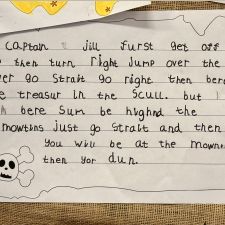 Captain jill furst get off
then turn right Jump over the
ver go strait go right then bere
e treasur in the scull. but I
bere sum be highnd the
mowtins just go strait and then
you will be at the mownt
then yor dun.